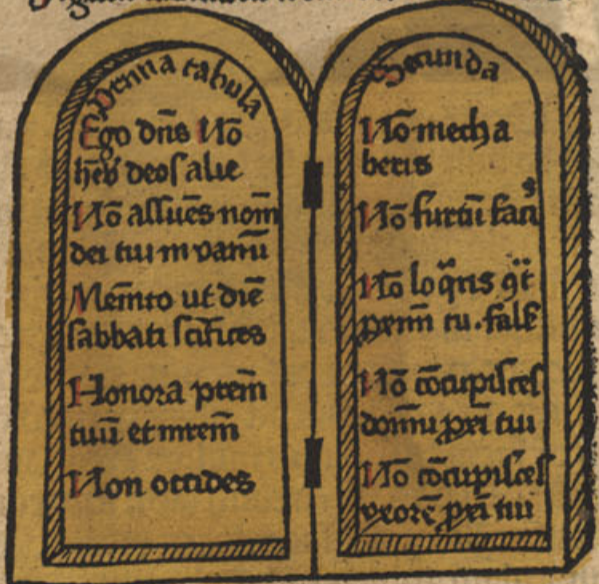 Prima tabula
Ego dn̄s Nō
hēb deos alie
Nō assūes nom̄
dei tui in vanū
Mem̄to ut diē
sabbati sc̄ifices
Honora prem̄
tuū et mrem̄
Non occides
Secunda
Nō mecha
beris
Nō furtū faci
s
Nō loq̄ris ꝯt̄
ꝓxim̄ tu. fals̄
Nō cōcupisces
domū ꝓxi tui
Nō cōcupisces
vxorē ꝓxi tui